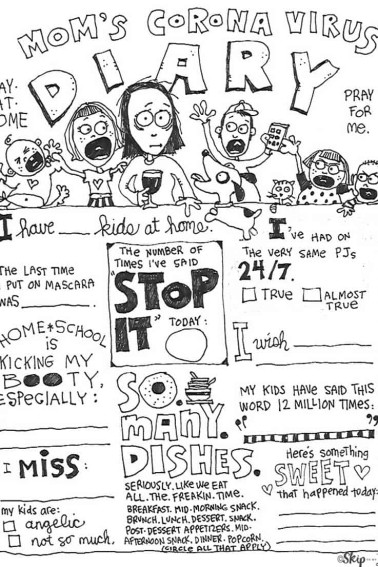 MOM'S CORONA VIRUS
DIARY
AY.
HT.
OME
PRAY
FOR
ME.
I have ____ kids at home.
THE LAST TIME
PUT ON MASCARA
WAS ________.
THE NUMBER OF
TIMES I'VE SAID
"STOP
IT"
TODAY:
I'VE HAD ON
THE VERY SAME PJs
24/7.
TRUE
ALMOST
TRUE
I wish
HOME*SCHOOL
is
KICKING MY
BOOTY,
ESPECIALLY:
SO.
MANY.
DISHES.
SERIOUSLY. LIKE WE EAT
ALL. THE. FREAKIN. TIME.
BREAKFAST. MID-MORNING SNACK.
BRUNCH. LUNCH. DESSERT. SNACK.
POST-DESSERT APPETIZERS. MID-
AFTERNOON SNACK. DINNER. POPCORN.
(CIRCLE ALL THAT APPLY)
MY KIDS HAVE SAID THIS
WORD 12 MILLION TIMES:
" "
I MISS:
my kids are:
angelic
not so much.
Here's something
SWEET
that happened today:
©Skip